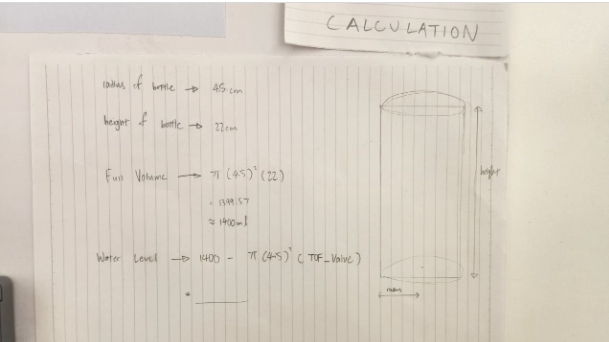 CALCULATION
radius of bottle → 4.5 cm
height of bottle → 22 cm
Full Volume → π (4.5)² (22)
= 1399.57
≈ 1400 ml
Water Level → 1400 - π (4.5)² ( TOF_Value )
=
height
radius